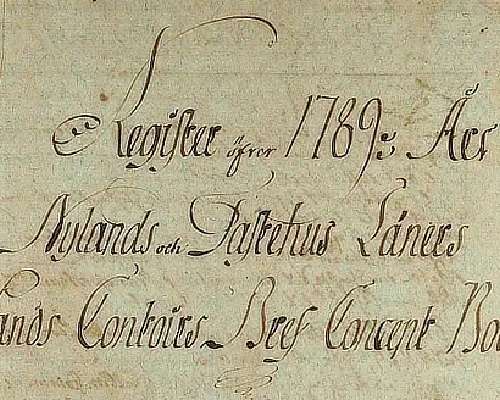 Register öfver 1789s Års
Nylands och Tastehus Läners
Lands Contoirs Bref Concept Boc